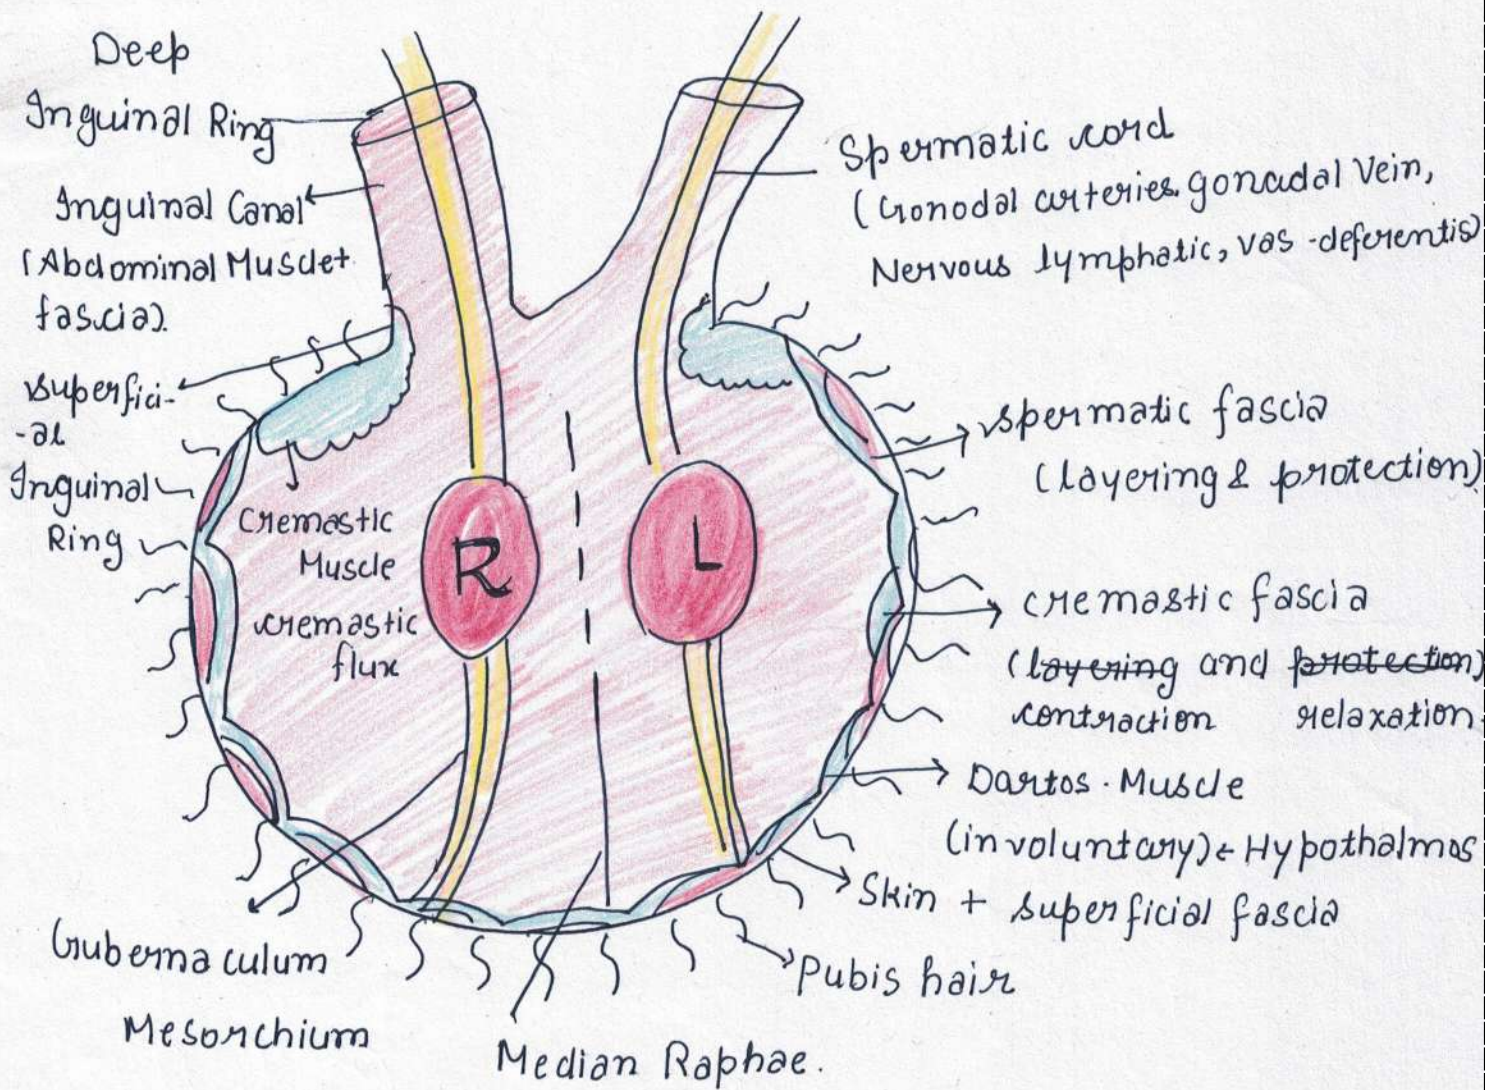 Deep
Inguinal Ring
Inguinal Canal
(Abdominal Muscle+
fascia).
superfici-
-al
Inguinal
Ring
Cremastic
Muscle
cremastic
flux
R
L
Spermatic cord
(Gonodal arteries. gonadal Vein,
Nervous lymphatic, vas-deferentis)
spermatic fascia
(layering & protection)
cremastic fascia
(layering and protection)
contraction relaxation.
Dartos. Muscle
(involuntary) ← Hypothalmos
Skin + superficial fascia
Pubis hair
Gubernaculum
Mesorchium
Median Raphae.